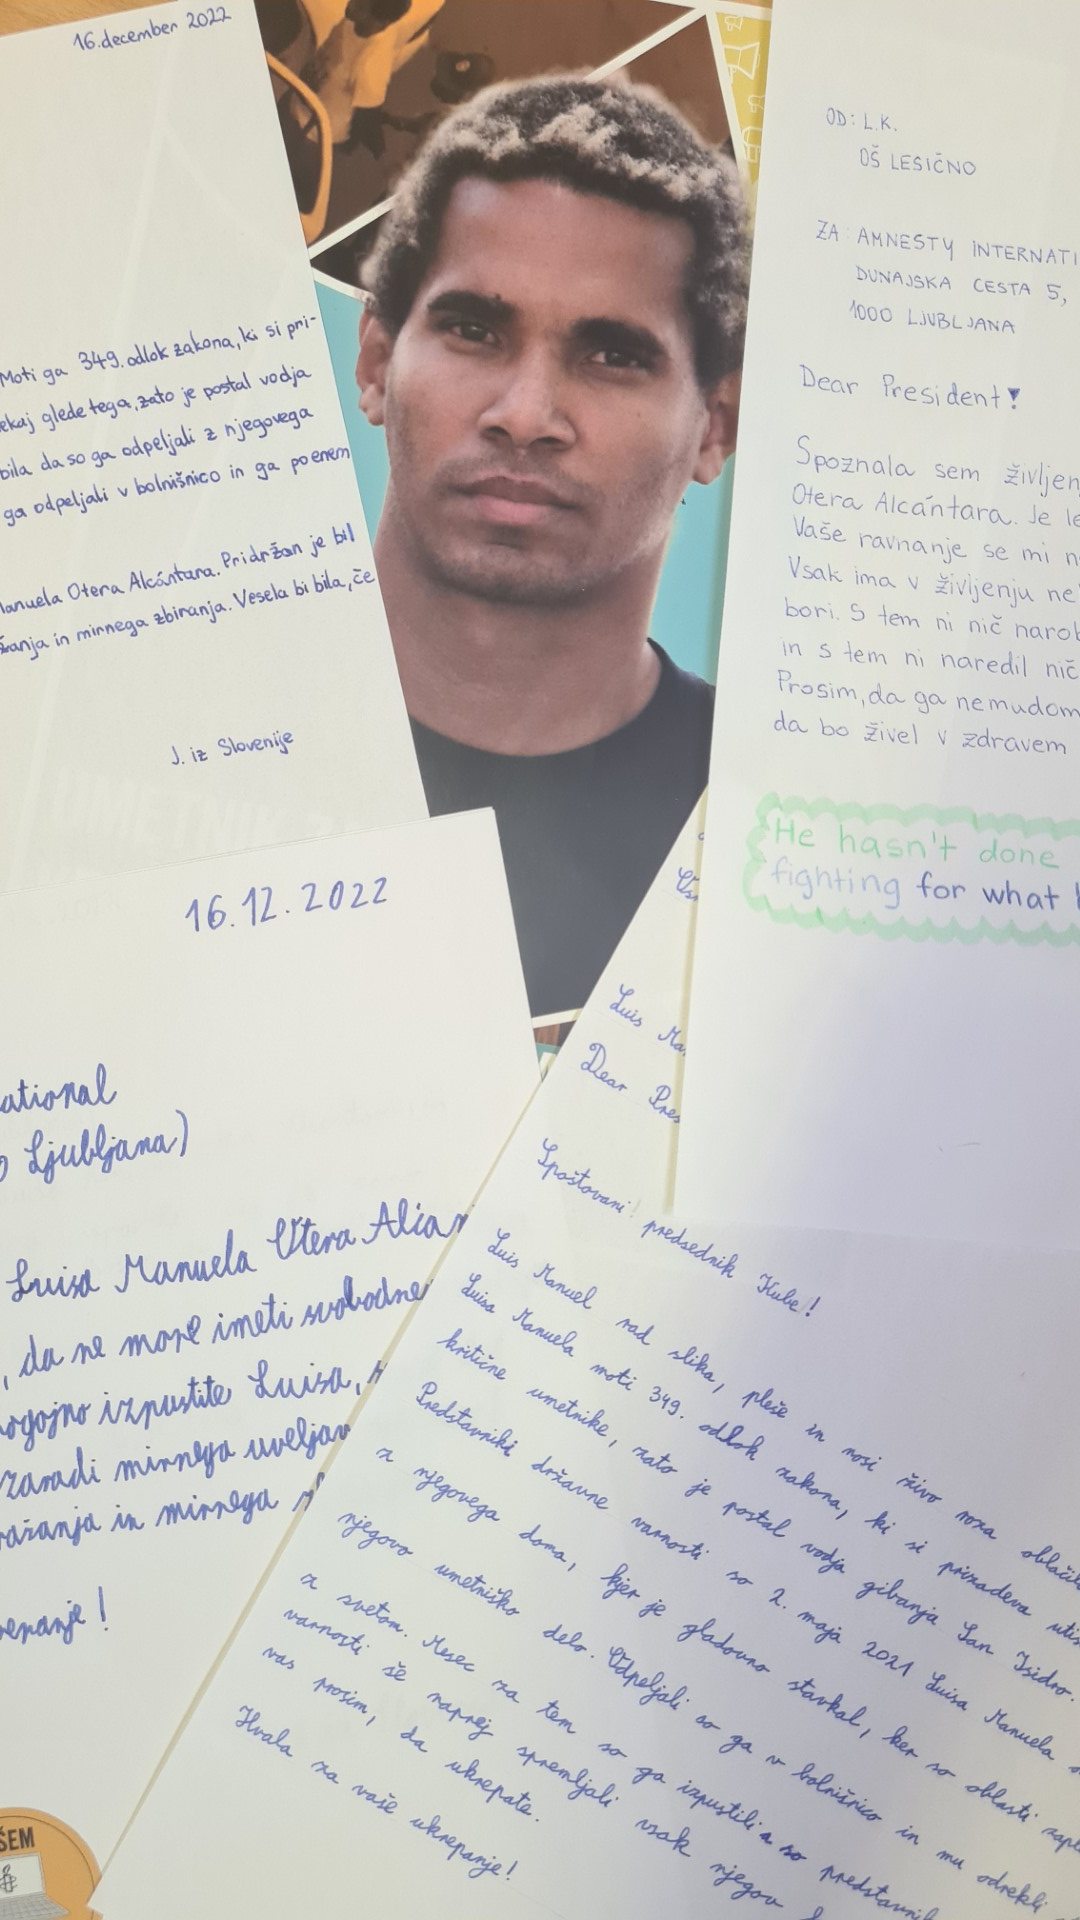 16. december 2022
Moti ga 349. odlok zakona, ki si pri-
ekaj glede tega, zato je postal vodja
bila da so ga odpeljali z njegovega
ga odpeljali v bolnišnico in ga poenem
Manuela Otera Alcántara. Pridržan je bil
žanja in mirnega zbiranja. Vesela bi bila, če
J. iz Slovenije
OD: L.K.
OŠ LESIČNO
ZA: AMNESTY INTERNATI
DUNAJSKA CESTA 5,
1000 LJUBLJANA
Dear President!
Spoznala sem življen
Otera Alcántara. Je le
Vaše ravnanje se mi n
Vsak ima v življenju ne
bori. S tem ni nič narob
in s tem ni naredil nič
Prosim, da ga nemudom
da bo živel v zdravem
He hasn't done
fighting for what
16.12.2022
ational
Ljubljana)
Luisa Manuela Otera Alcan
, da ne more imeti svobodne
ogojno izpustite Luisa,
zaradi mirnega uveljav
ražanja in mirnega
repanje!
Luis Ma
Dear Pres
Spoštovani predsednik Kube!
Luis Manuel rad slika, pleše in nosi živo roza oblačil
Luisa Manuela moti 349. odlok zakona, ki si prizadeva utiš
kritične umetnike, zato je postal vodja gibanja San Isidro.
Predstavniki državne varnosti so 2. maja 2021 Luisa Manuela
z njegovega doma, kjer je gladovno stavkal, ker so oblasti zaple
njegovo umetniško delo. Odpeljali so ga v bolnišnico in mu odrekli
s svetom. Mesec za tem so ga izpustili a so predstavnik
varnosti še naprej spremljali vsak njegov
vas prosim, da ukrepate.
Hvala za vaše ukrepanje!
ŠEM